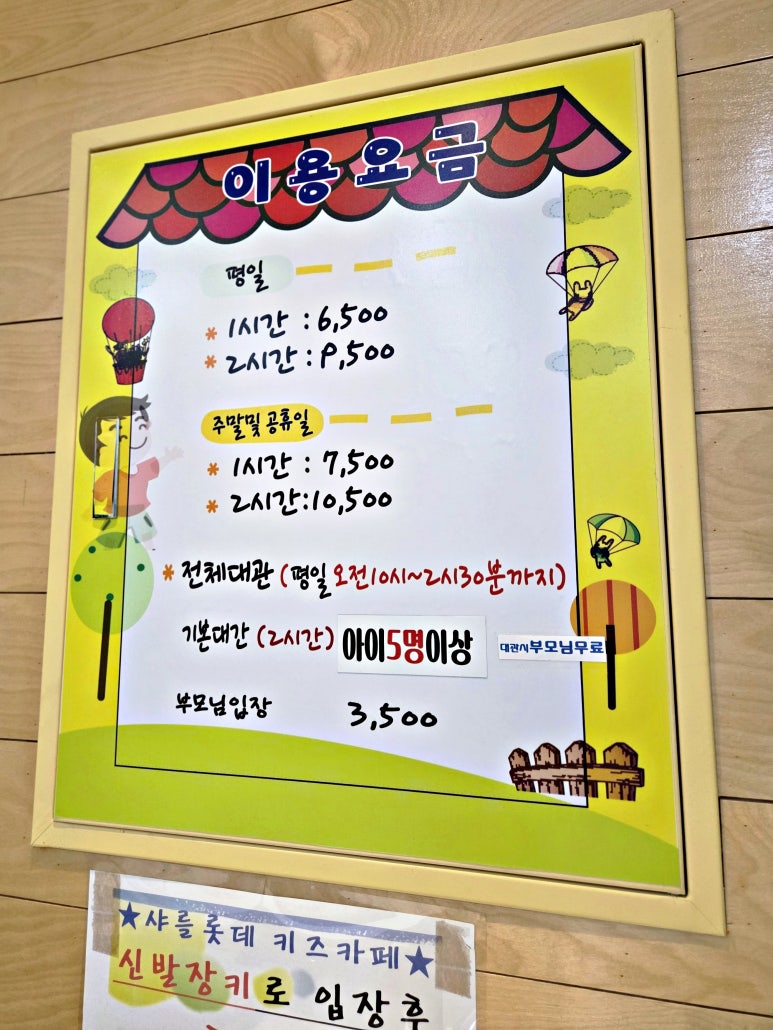 이용요금
평일
* 1시간 : 6,500
* 2시간 : 9,500
주말및 공휴일
* 1시간 : 7,500
* 2시간:10,500
* 전체대관 (평일 오전10시~2시30분까지)
기본대간 (2시간) 아이5명이상 대관시부모님무료
부모님입장 3,500
★샤를롯데 키즈카페★
신발장키로 입장후